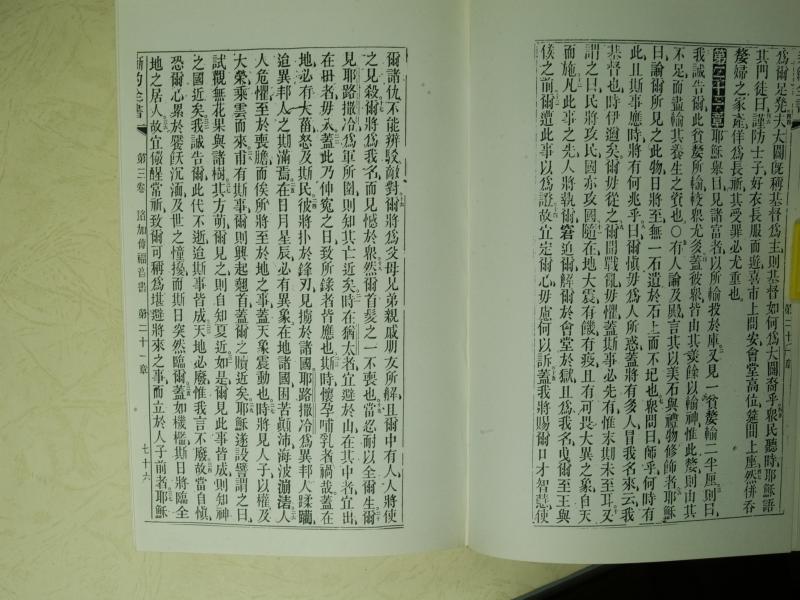 爲爾足發夫大闢旣稱基督爲主則基督如何爲大闢裔乎衆民聽時耶穌語
其門徒曰謹防士子好衣長服而遊喜市上問安會堂高位筵間上座然併吞
嫠婦之家產佯爲長祈其受罪必尤重也
第二十一章耶穌舉目見諸富者以所輸投於庫又見一貧嫠輸二半厘則曰
我誠告爾此貧嫠所輸較衆尤多蓋彼衆皆由其羨餘以輸神惟此嫠則由其
不足而盡輸其養生之資也○有人論及殿言其以美石與禮物修飾者耶穌
曰論爾所見之此物日將至無一石遺於石上而不圮也衆問曰師乎何時有
此且斯事應時將有何兆乎曰爾慎毋爲人所惑蓋將有多人冒我名來云我
基督也時伊邇矣爾毋從之爾聞戰亂毋懼蓋斯事必先有惟末期未至耳又
謂之曰民將攻民國亦攻國隨在地大震有饑有疫且有可畏大異之象自天
而施凡此事之先人將執爾窘迫爾解爾於會堂於獄且爲我名曳爾至王與
侯之前爾遭此事以爲證故宜定爾心毋慮何以訴蓋我將賜爾口才智慧使
爾諸仇不能辨駁敵對爾將爲父母兄弟親戚朋友所解且爾中有人人將使
之見殺爾將爲我名而見憾於衆然爾首髮之一不喪也當忍耐以全爾生爾
見耶路撒冷爲軍所圍則知其亡近矣時在猶太者宜避於山在其中者宜出
在田者毋入蓋此乃伸寃之日致所錄者皆應也斯時懷孕哺乳者禍哉蓋在
地必有大菑怒及斯民彼將扑於鋒刃見擄於諸國耶路撒冷爲異邦人蹂躪
迨異邦人之期滿焉在日月星辰必有異象在地諸國困苦顛沛海波漰濤人
人危懼至於喪膽而俟所將至於地之事蓋天象震動也時將見人子以權及
大榮乘雲而來甫有斯事爾則興起翹首蓋爾之贖近矣耶穌遂設譬謂之曰
試觀無花果與諸樹其方萌爾見之則自知夏近如是爾見此事皆成則知神
之國近矣我誠告爾此代不逝迨斯事皆成天地必廢惟我言不廢故當自慎
恐爾心累於饜飫沉湎及世之憧擾而斯日突然臨爾蓋如機檻斯日將臨全
地之居人故宜儆醒當祈致爾可稱爲堪避將來之事而立於人子前者耶穌
新約全書 第三卷 路加傳福音書 第二十一章 七十六